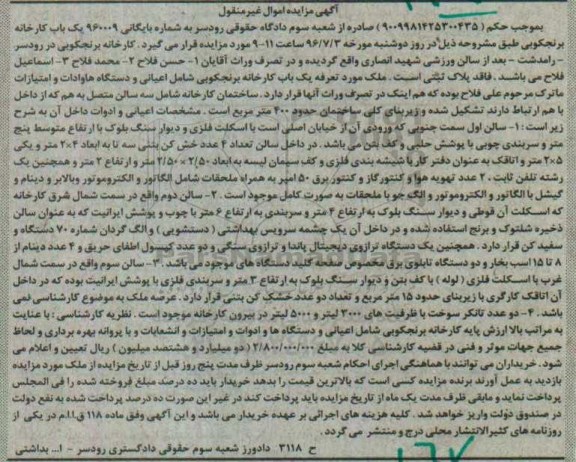 آگهی مزایده اموال غیرمنقول
بموجب حکم ( ۹۰۰۹۹۸۱۴۲۵۳۰۰۴۳۵ ) صادره از شعبه سوم دادگاه حقوقی رودسر به شماره بایگانی ۹۶۰۰۰۹ یک باب کارخانه
برنجکوبی طبق مشروحه ذیل در روز دوشنبه مورخه ۹۶/۷/۳ ساعت ۱۱-۹ مورد مزایده قرار می گیرد . کارخانه برنجکوبی در رودسر
- رامدشت - بعد از سالن ورزشی شهید انصاری واقع گردیده و در تصرف وراث آقایان ۱- حسن فلاح ۲- محمد فلاح ۳- اسماعیل
فلاح می باشید . فاقد پلاک ثبتی است . ملک مورد تعرفه یک باب کارخانه برنجکوبی شامل اعیانی و دستگاه هاوادات و امتیازات
ماترک مرحوم علی فلاح بوده که هم اینک در تصرف وراث آنها قرار دارد . ساختمان کارخانه شامل سه سالن متصل به هم که از داخل
با هم ارتباط دارند تشکیل شده و زیربنای کلی ساختمان حدود ۴۰۰ متر مربع است . مشخصات اعیانی و ادوات داخل آن به شرح
زیر است : ۱- سالن اول سمت جنوبی که ورودی آن از خیابان اصلی است با اسکلت فلزی و دیوار سنگ بلوک با ارتفاع متوسط پنج
متر و سربندی چوبی با پوشش حلبی و کف بتن می باشد . در داخل سالن تعداد ۴ عدد خش کن بتنی سه تا به ابعاد ۴×۲ متر و یکی
۵×۲ متر و اتاقک به عنوان دفتر کار با شیشه بندی فلزی و کف سیمان لیسه به ابعاد ۲/۵۰ × ۳/۵۰ متر و ارتفاع ۲ متر و همچنین یک
رشته تلفن ثابت ، ۲ عدد تهویه هوا و کنتور گاز و کنتور برق ۵۰ امپر به همراه ملحقات شامل الگاتور و الکتروموتور وبالابر و دینام و
گیشل با الگاتور و الکتروموتور و الگ جو با ملحقات به صورت کامل موجود است . ۲- سالن دوم واقع در سمت شمال شرق کارخانه
که اسکلت آن قوطی و دیوار سنگ بلوک به ارتفاع ۴ متر و سربندی به ارتفاع ۶ متر با چوب و پوشش ایرانیت که به عنوان سالن
ذخیره شلتوک و برنج استفاده شده و در داخل آن یک چشمه سرویس بهداشتی ( دستشویی ) و الگ گردان شماره ۷۰ دستگاه و
سفید کن قرار دارد . همچنین یک دستگاه ترازوی دیجیتال پاندا و ترازوی سنگی و دو عدد کپسول اطفای حریق و ۴ عدد دینام از
۸ تا ۱۵ اسب بخار و دو دستگاه تابلوی برق مخصوص همه کلید دستگاه های موجود می باشد . ۳- سالن سوم واقع در سمت شمال
غرب با اسکلت فلزی ( لوله ) با کف بتن و دیوار سنگ بلوک به ارتفاع ۳ متر و سربندی فلزی با پوشش ایرانیت بوده که در داخل
آن اتاقک کارگری با زیربنای حدود ۱۵ متر مربع و تعداد دو عدد خشک کن بتنی قرار دارد . عرصه ملک به موضوع کارشناسی نمی
باشد . ۴- دو عدد تانکر سوخت با ظرفیت های ۳۰۰۰ لیتر و ۵۰۰۰ لیتر در بیرون کارخانه موجود است . نظریه کارشناسی : با عنایت
به مراتب بالا ارزش پایه کارخانه برنجکوبی شامل اعیانی و دستگاه ها و ادوات و امتیازات و انشعابات و با پروانه بهره برداری و لحاظ
جمیع جهات موثر و فنی در قضیه کارشناسی کلا به مبلغ ۲/۸۰۰/۰۰۰/۰۰۰ (دو میلیارد و هشتصد میلیون ) ریال تعیین و اعلام می
شود . خریداران می توانند با هماهنگی اجرای احکام شعبه سوم رودسر ظرف مدت پنج روز قبل از تاریخ مزایده از ملک مورد مزایده
بازدید به عمل آورند برنده مزایده کسی است که بالاترین قیمت را بدهد خریدار باید ده درصد مبلغ فروخته شده را فی المجلس
پرداخت نماید و مابقی ظرف مدت یک ماه از تاریخ مزایده باید پرداخت کند در غیر این صورت ده درصد پرداخت شده به نفع دولت
در صندوق دولت واریز خواهد شد . کلیه هزینه های اجرائی بر عهده خریدار می باشد و این آگهی وفق ماده ۱۱۸ ق.ا.ا.م در یکی از
روزنامه های کثیرالانتشار محلی درج و منتشر می گردد .
ح ۳۱۱۸ دادورز شعبه سوم حقوقی دادگستری رودسر - ا... بداشتی